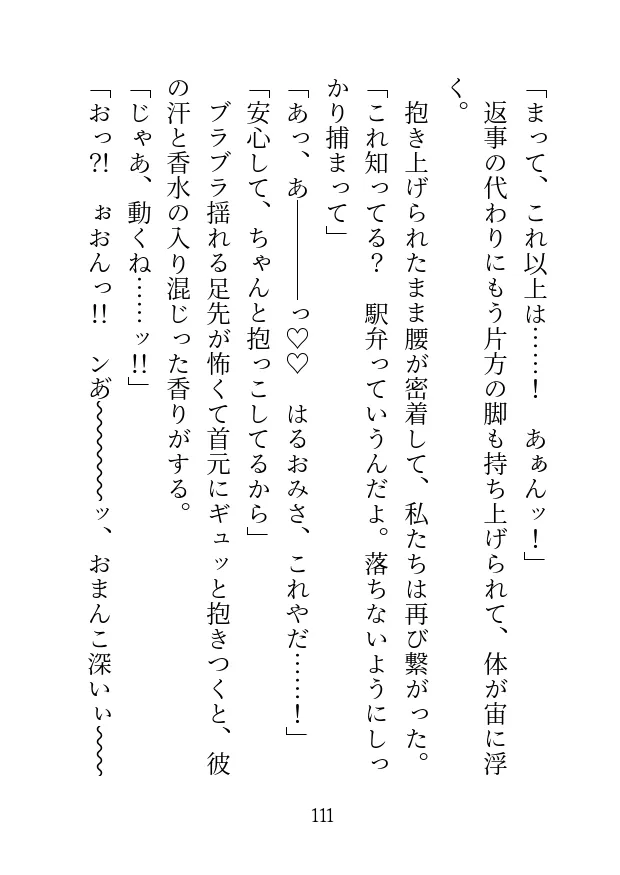 「まって、これ以上は……！　あぁんッ！」
　返事の代わりにもう片方の脚も持ち上げられて、体が宙に浮
く。
　抱き上げられたまま腰が密着して、私たちは再び繋がった。
「これ知ってる？　駅弁っていうんだよ。落ちないようにしっ
かり捕まって」
「あっ、あ――――っ♡♡　はるおみさ、これやだ……！」
「安心して、ちゃんと抱っこしてるから」
　ブラブラ揺れる足先が怖くて首元にギュッと抱きつくと、彼
の汗と香水の入り混じった香りがする。
「じゃあ、動くね……ッ!!」
「おっ?!　ぉおんっ!!　ンあ゙〜〜〜〜ッ、おまんこ深いぃ〜〜
111